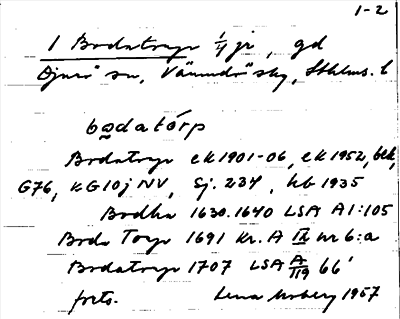 1-2
1 Bodatorp 1/4 jr, gd
Djurö sn, Värmdö skg, Sthlms. l
bodatórp
Bodatorp ek 1901-06, ek 1952, bek,
G76, KG10j NV, Sj. 234, hb 1935
Bodha 1630.1640 LSA A1:105
Boda Torp 1691 Kr. A IX nr 6:a
Bodatorp 1707 LSA A/119 66'
forts. Lena Moberg 1957